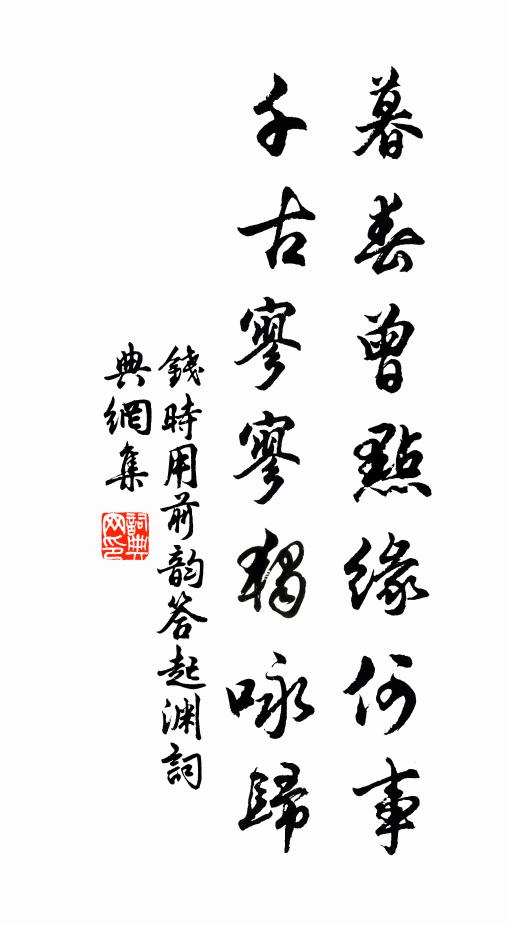 暮春曾點緣何事
千古寥寥獨咏歸
錢時用前韵答起渊詞
典網集
詞典網印